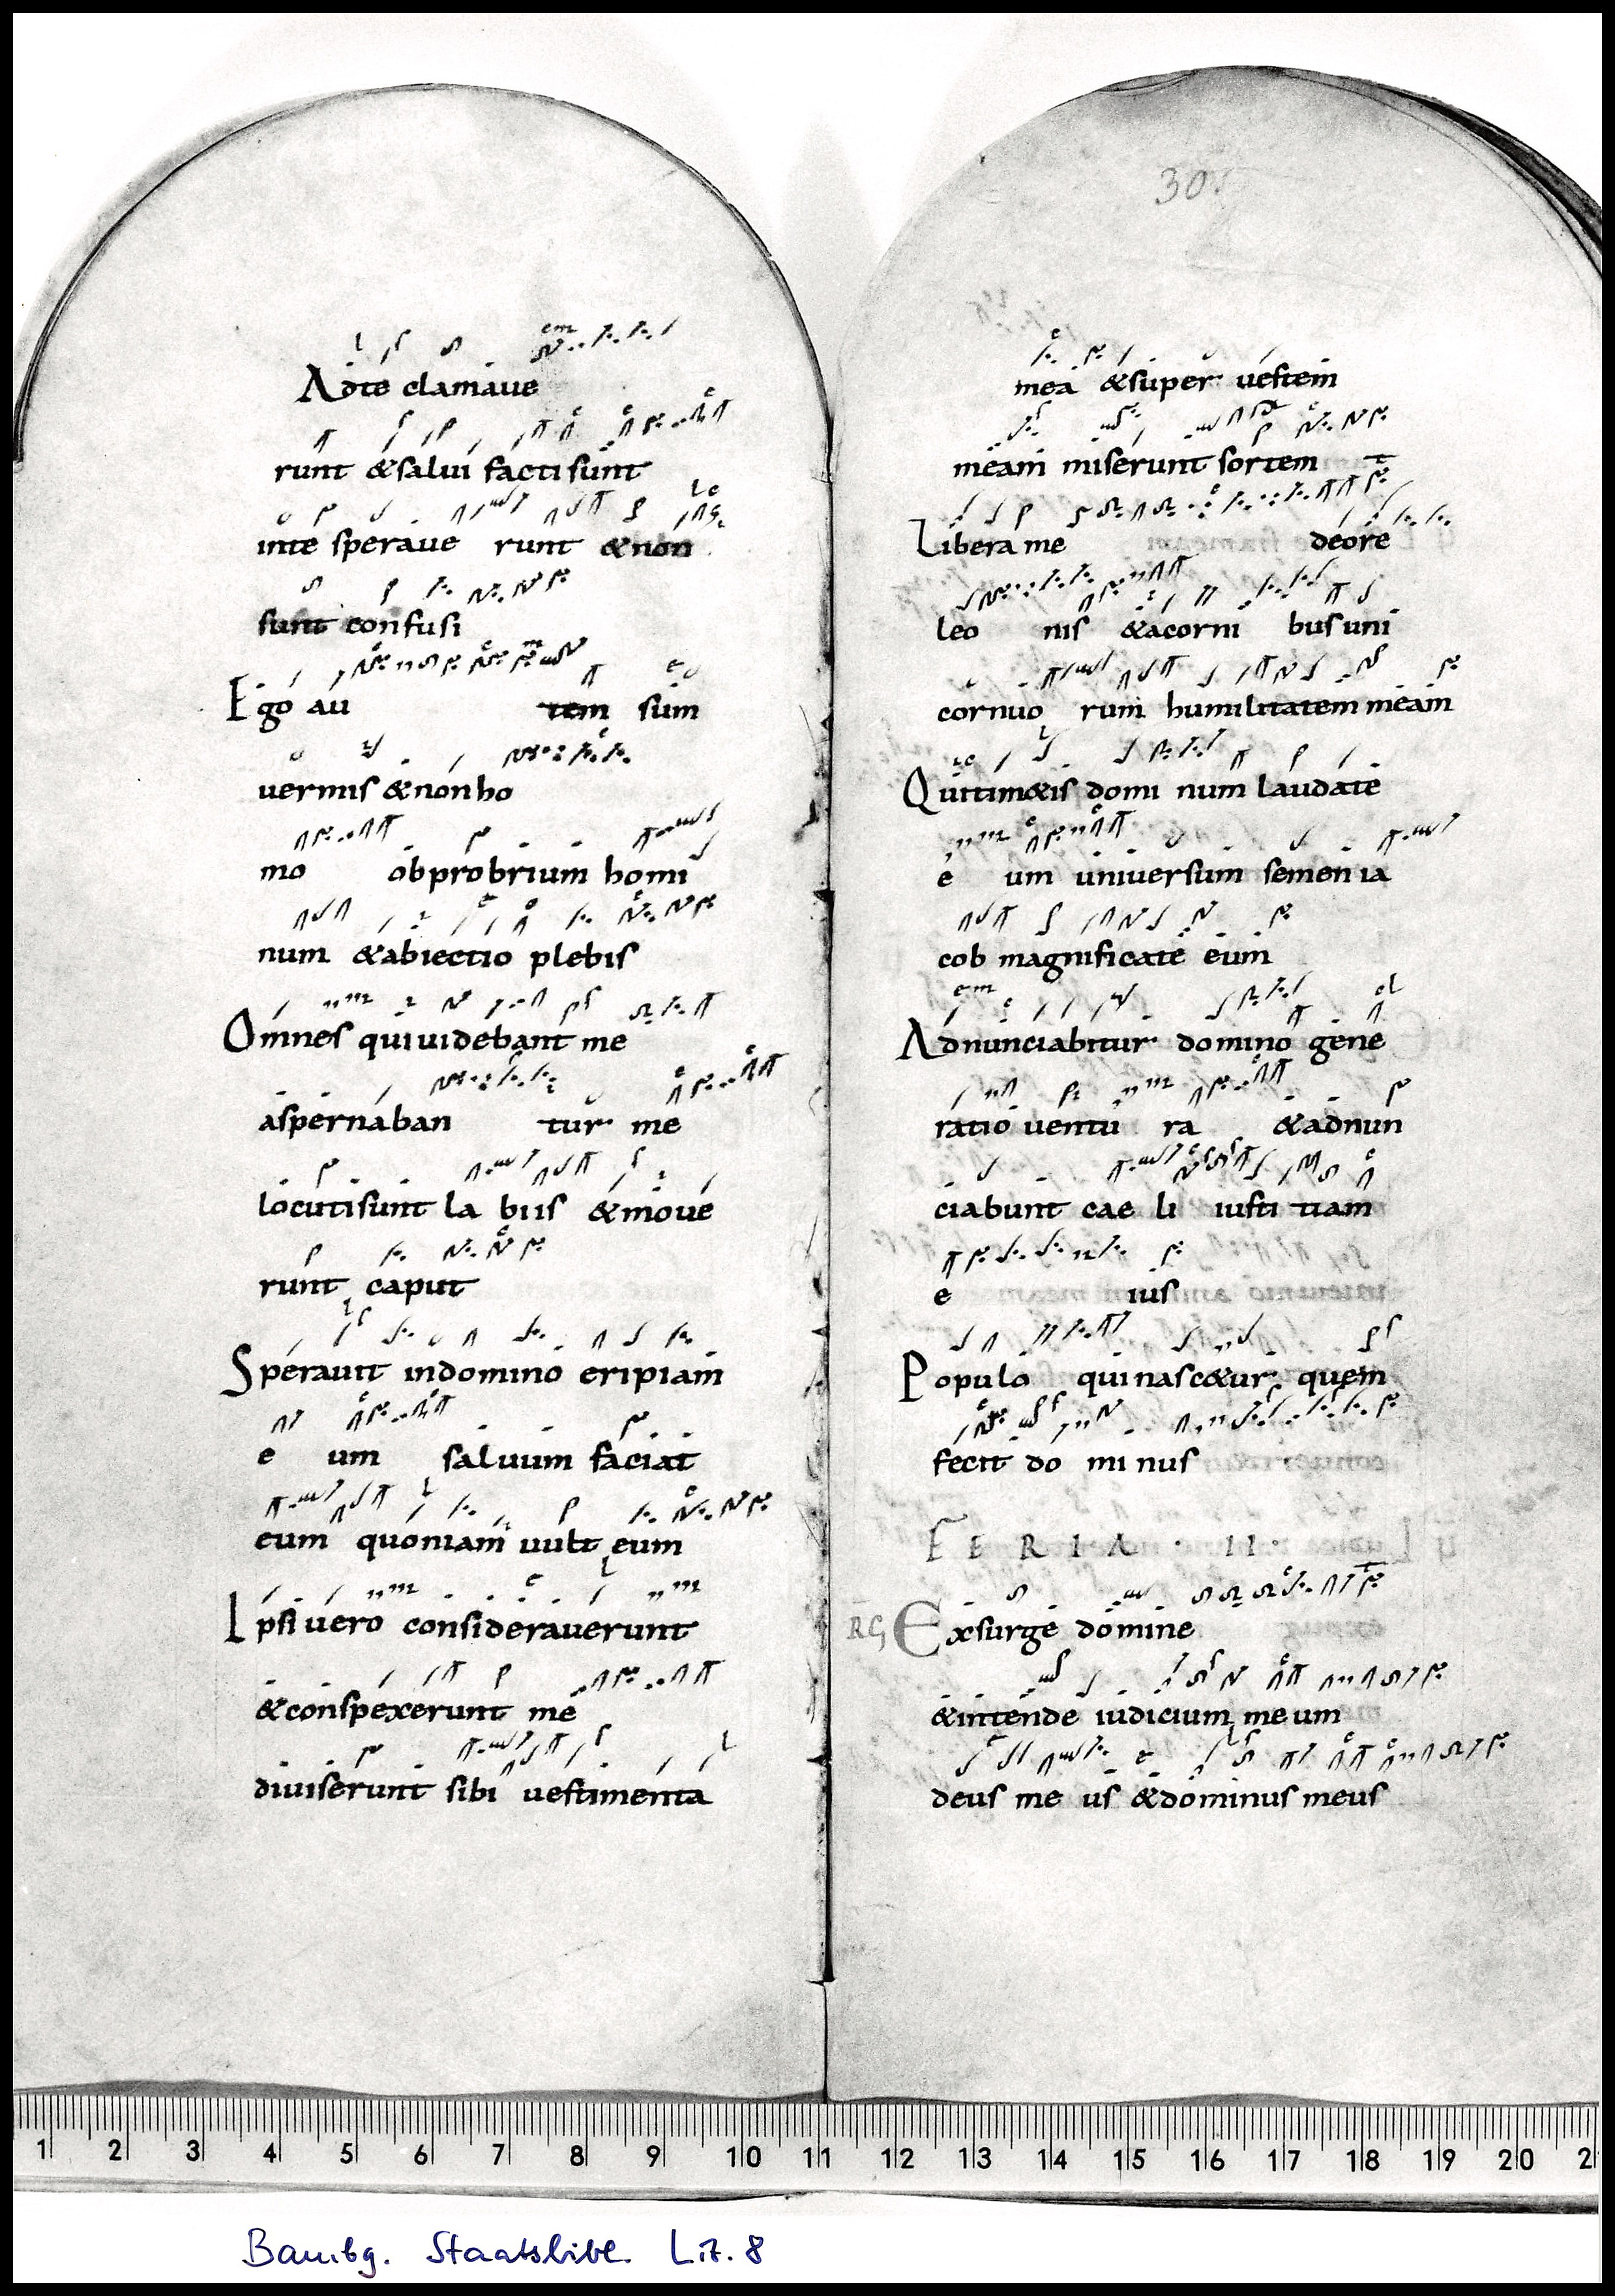 Adte clamaue
runt &salui facti sunt
inte speraue runt &non
sunt confusi
Ego au tem sum
uermis &non ho
mo obprobrium homi
num &abiectio plebis
Omnes qui uidebant me
aspernaban tur me
locuti sunt la biis &moue
runt caput
Sperauit indomino eripiam
e um saluum faciat
eum quoniam uult eum
Ipsi uero considerauerunt
&conspexerunt me
diuiserunt sibi uestimenta
30
mea &super uestem
meam miserunt sortem
Libera me deore
leo nis &acorni bus uni
cornuo rum humilitatem meam
Quitim&is domi num laudate
e um uniuersum semen ia
cob magnificate eum
Adnunciabitur domino gene
ratio uentu ra &adnun
ciabunt cae li iusti tiam
e ius
Populo qui nasc&ur quem
fecit do mi nus
FERIA · II ·
RG Exsurge domine
&intende iudicium meum
deus me us &dominus meus
1 2 3 4 5 6 7 8 9 10 11 12 13 14 15 16 17 18 19 20 2
Bambg. Staatsbibl. Lit. 8